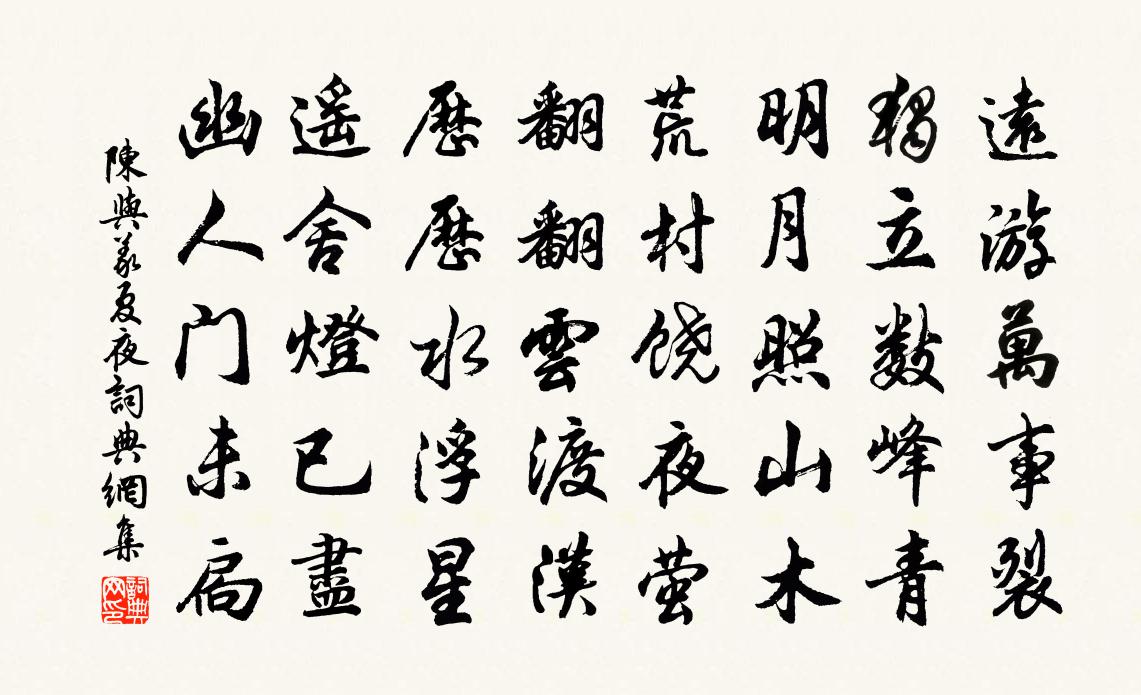 遠游萬事裂
獨立數峰青
明月照山木
荒村饶夜萤
翻翻雲渡漢
歷歷水浮星
遥舍燈已盡
幽人門未扃
陳與義夏夜詞典網集
詞典网印